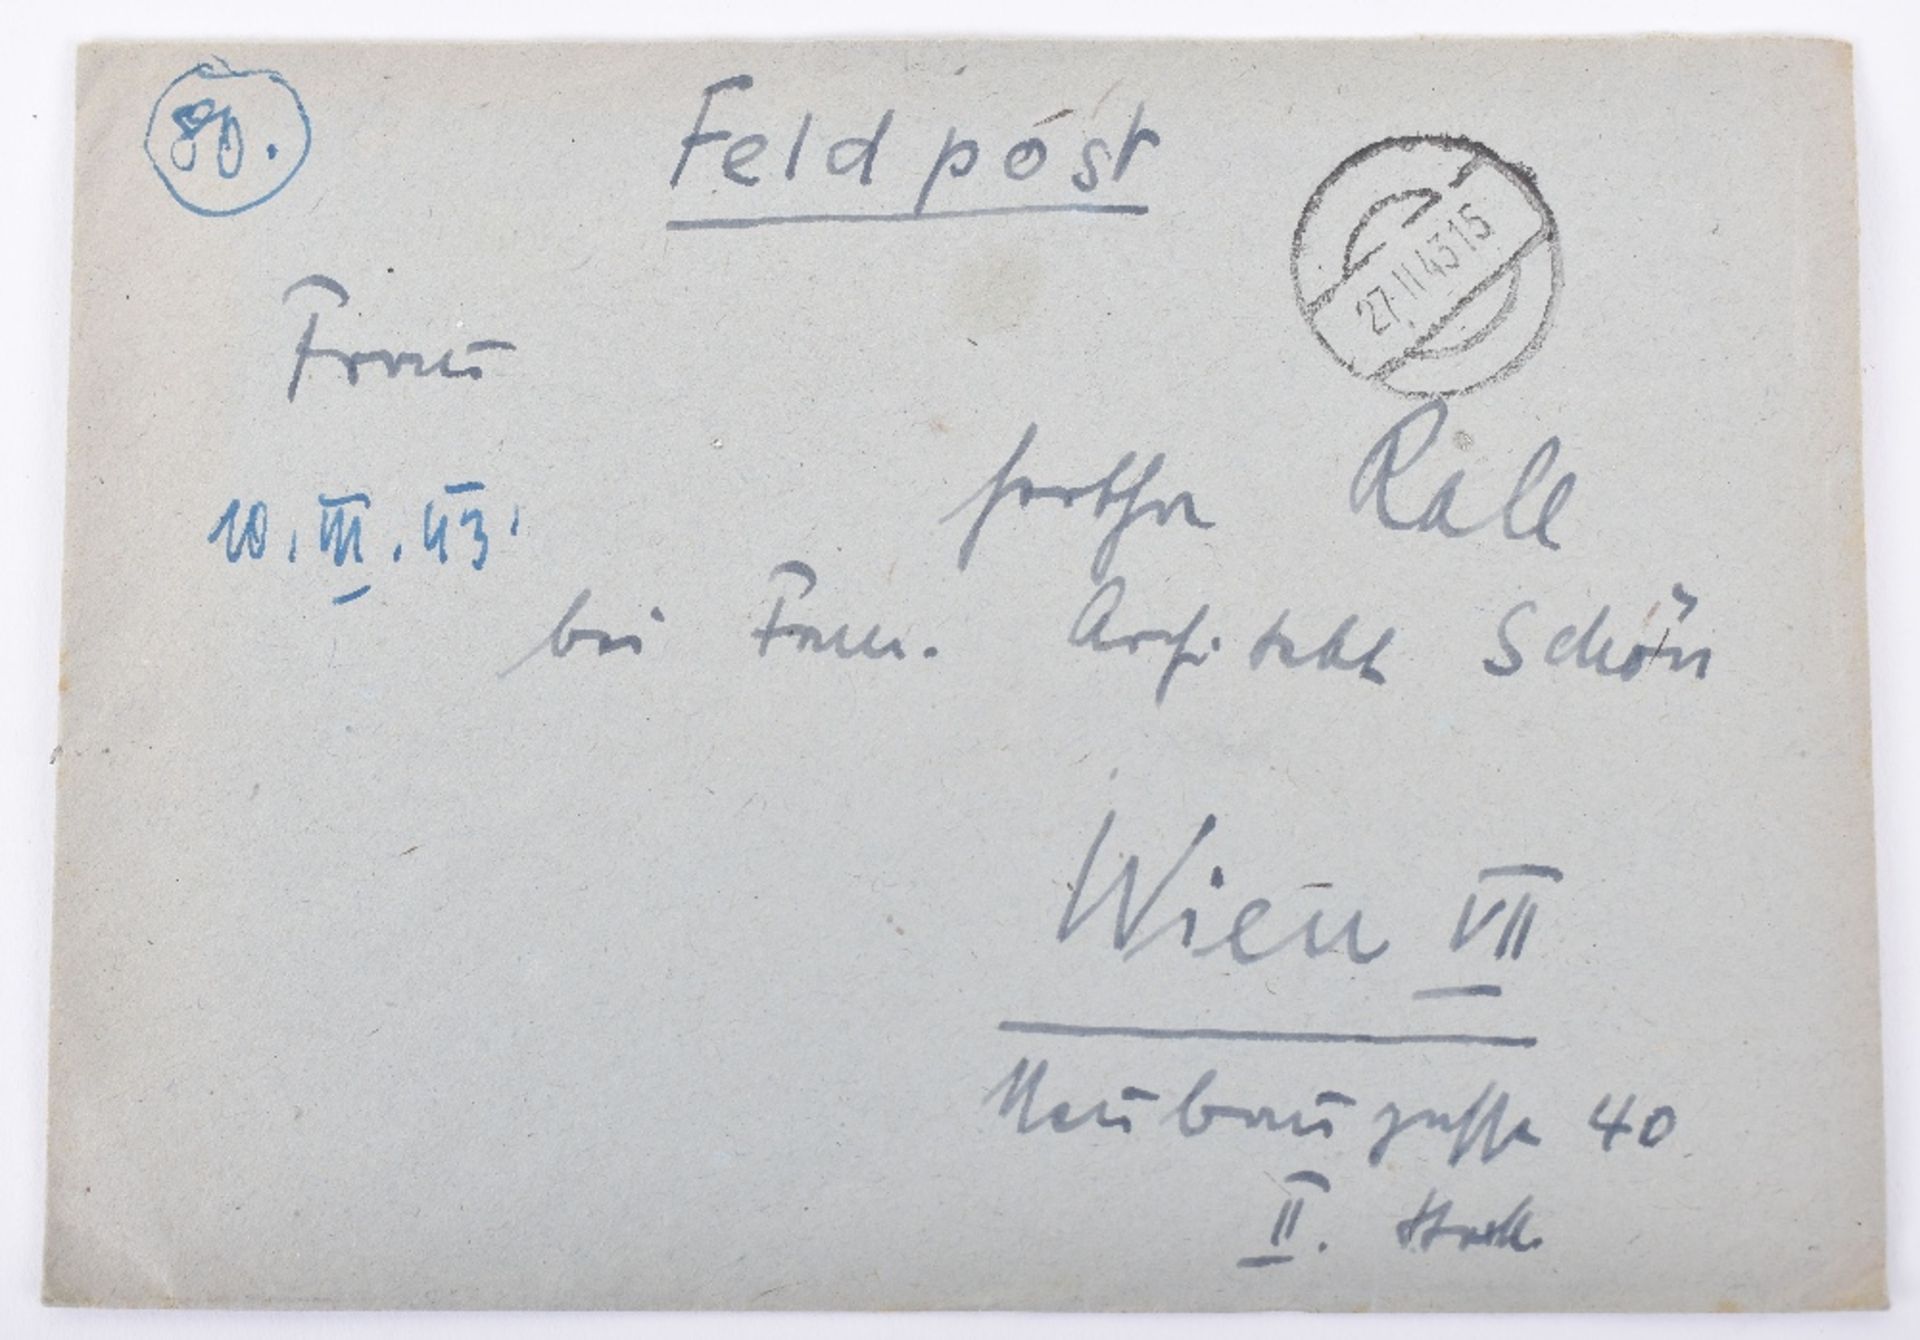 80.
Feldpost
27.II.43 15
Frau
Hertha Rall
10.III.43.
bei Fam. Architekt Schön
Wien VII
Neubaugasse 40
II. Stock